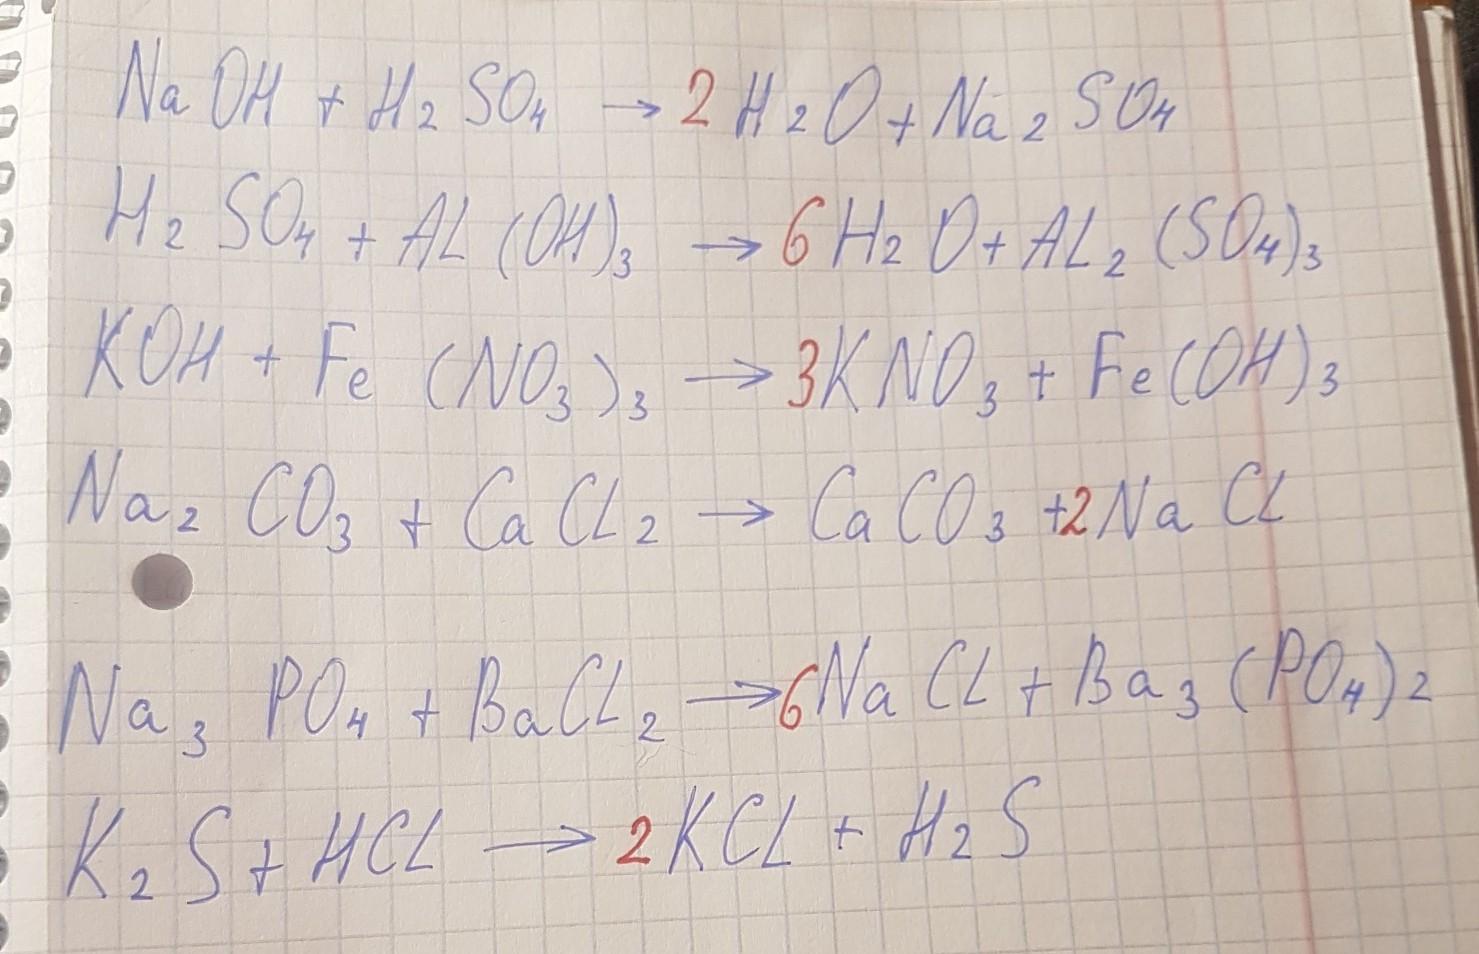 NaOH + H₂SO₄ → 2H₂O + Na₂SO₄
H₂SO₄ + AL(OH)₃ → 6H₂O + AL₂(SO₄)₃
KOH + Fe(NO₃)₃ → 3KNO₃ + Fe(OH)₃
Na₂CO₃ + CaCL₂ → CaCO₃ + 2NaCL
Na₃PO₄ + BaCL₂ → 6NaCL + Ba₃(PO₄)₂
K₂S + HCL → 2KCL + H₂S